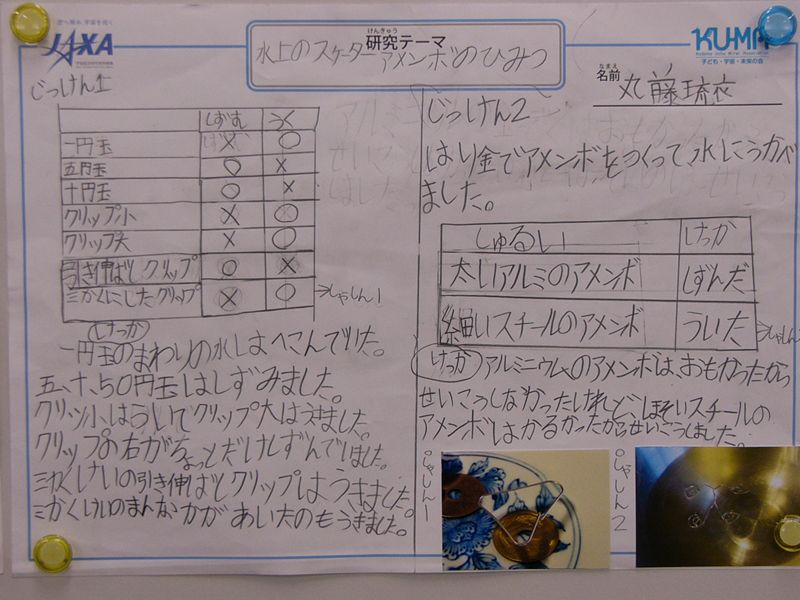 JAXA
けんきゅう
研究テーマ
水上のスケーター アメンボのひみつ
KUMA
子ども・宇宙・未来の会
なまえ
名前
丸藤琉衣
じっけん1
しずむ うく
一円玉 × ○
五円玉 ○ ×
十円玉 ○ ×
クリップ小 × ○
クリップ大 × ○
引き伸ばしクリップ ○ ×
三かくにしたクリップ × ○ →しゃしん1
けっか
一円玉のまわりの水はへこんでいた。
五、十、50円玉はしずみました。
クリップの右がちょっとだけしずんでいました。
三かくけいの引き伸ばしクリップはうきました。
三かくけいのまんなかがあいたのもうきました。
じっけん2
はり金でアメンボをつくって、水にうかべ
ました。
しゅるい けっか
太いアルミのアメンボ しずんだ
細いスチールのアメンボ ういた →しゃしん
けっか アルミニウムのアメンボは、おもかったから
せいこうしなかったけれど、ほそいスチールの
アメンボはかるかったからせいこうしました。
しゃしん1
しゃしん2